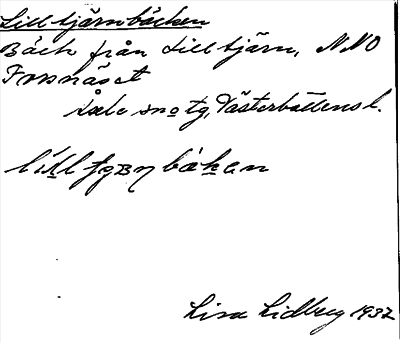 Lill-tjärnbäcken
Bäck från Lilltjärn, NNO
Forsnäset
Åsele sn o tg, Västerbottens l.
Lisa Lidberg 1932